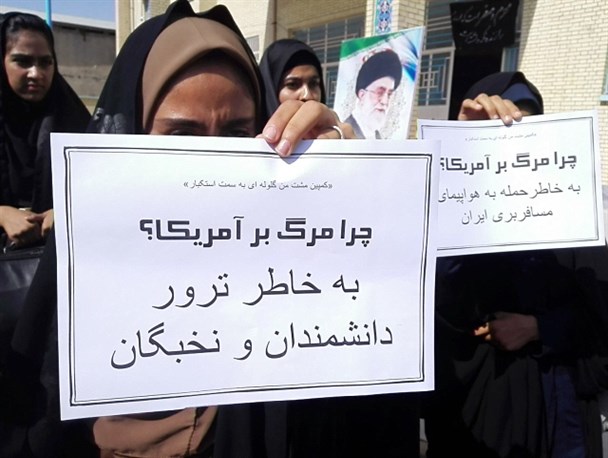 «کمپین مشت من گلوله ای به سمت استکبار»
چرا مرگ بر آمریکا؟
به خاطر ترور
دانشمندان و نخبگان
چرا مرگ بر آمریکا؟
به خاطر حمله به هواپیمای
مسافربری ایران